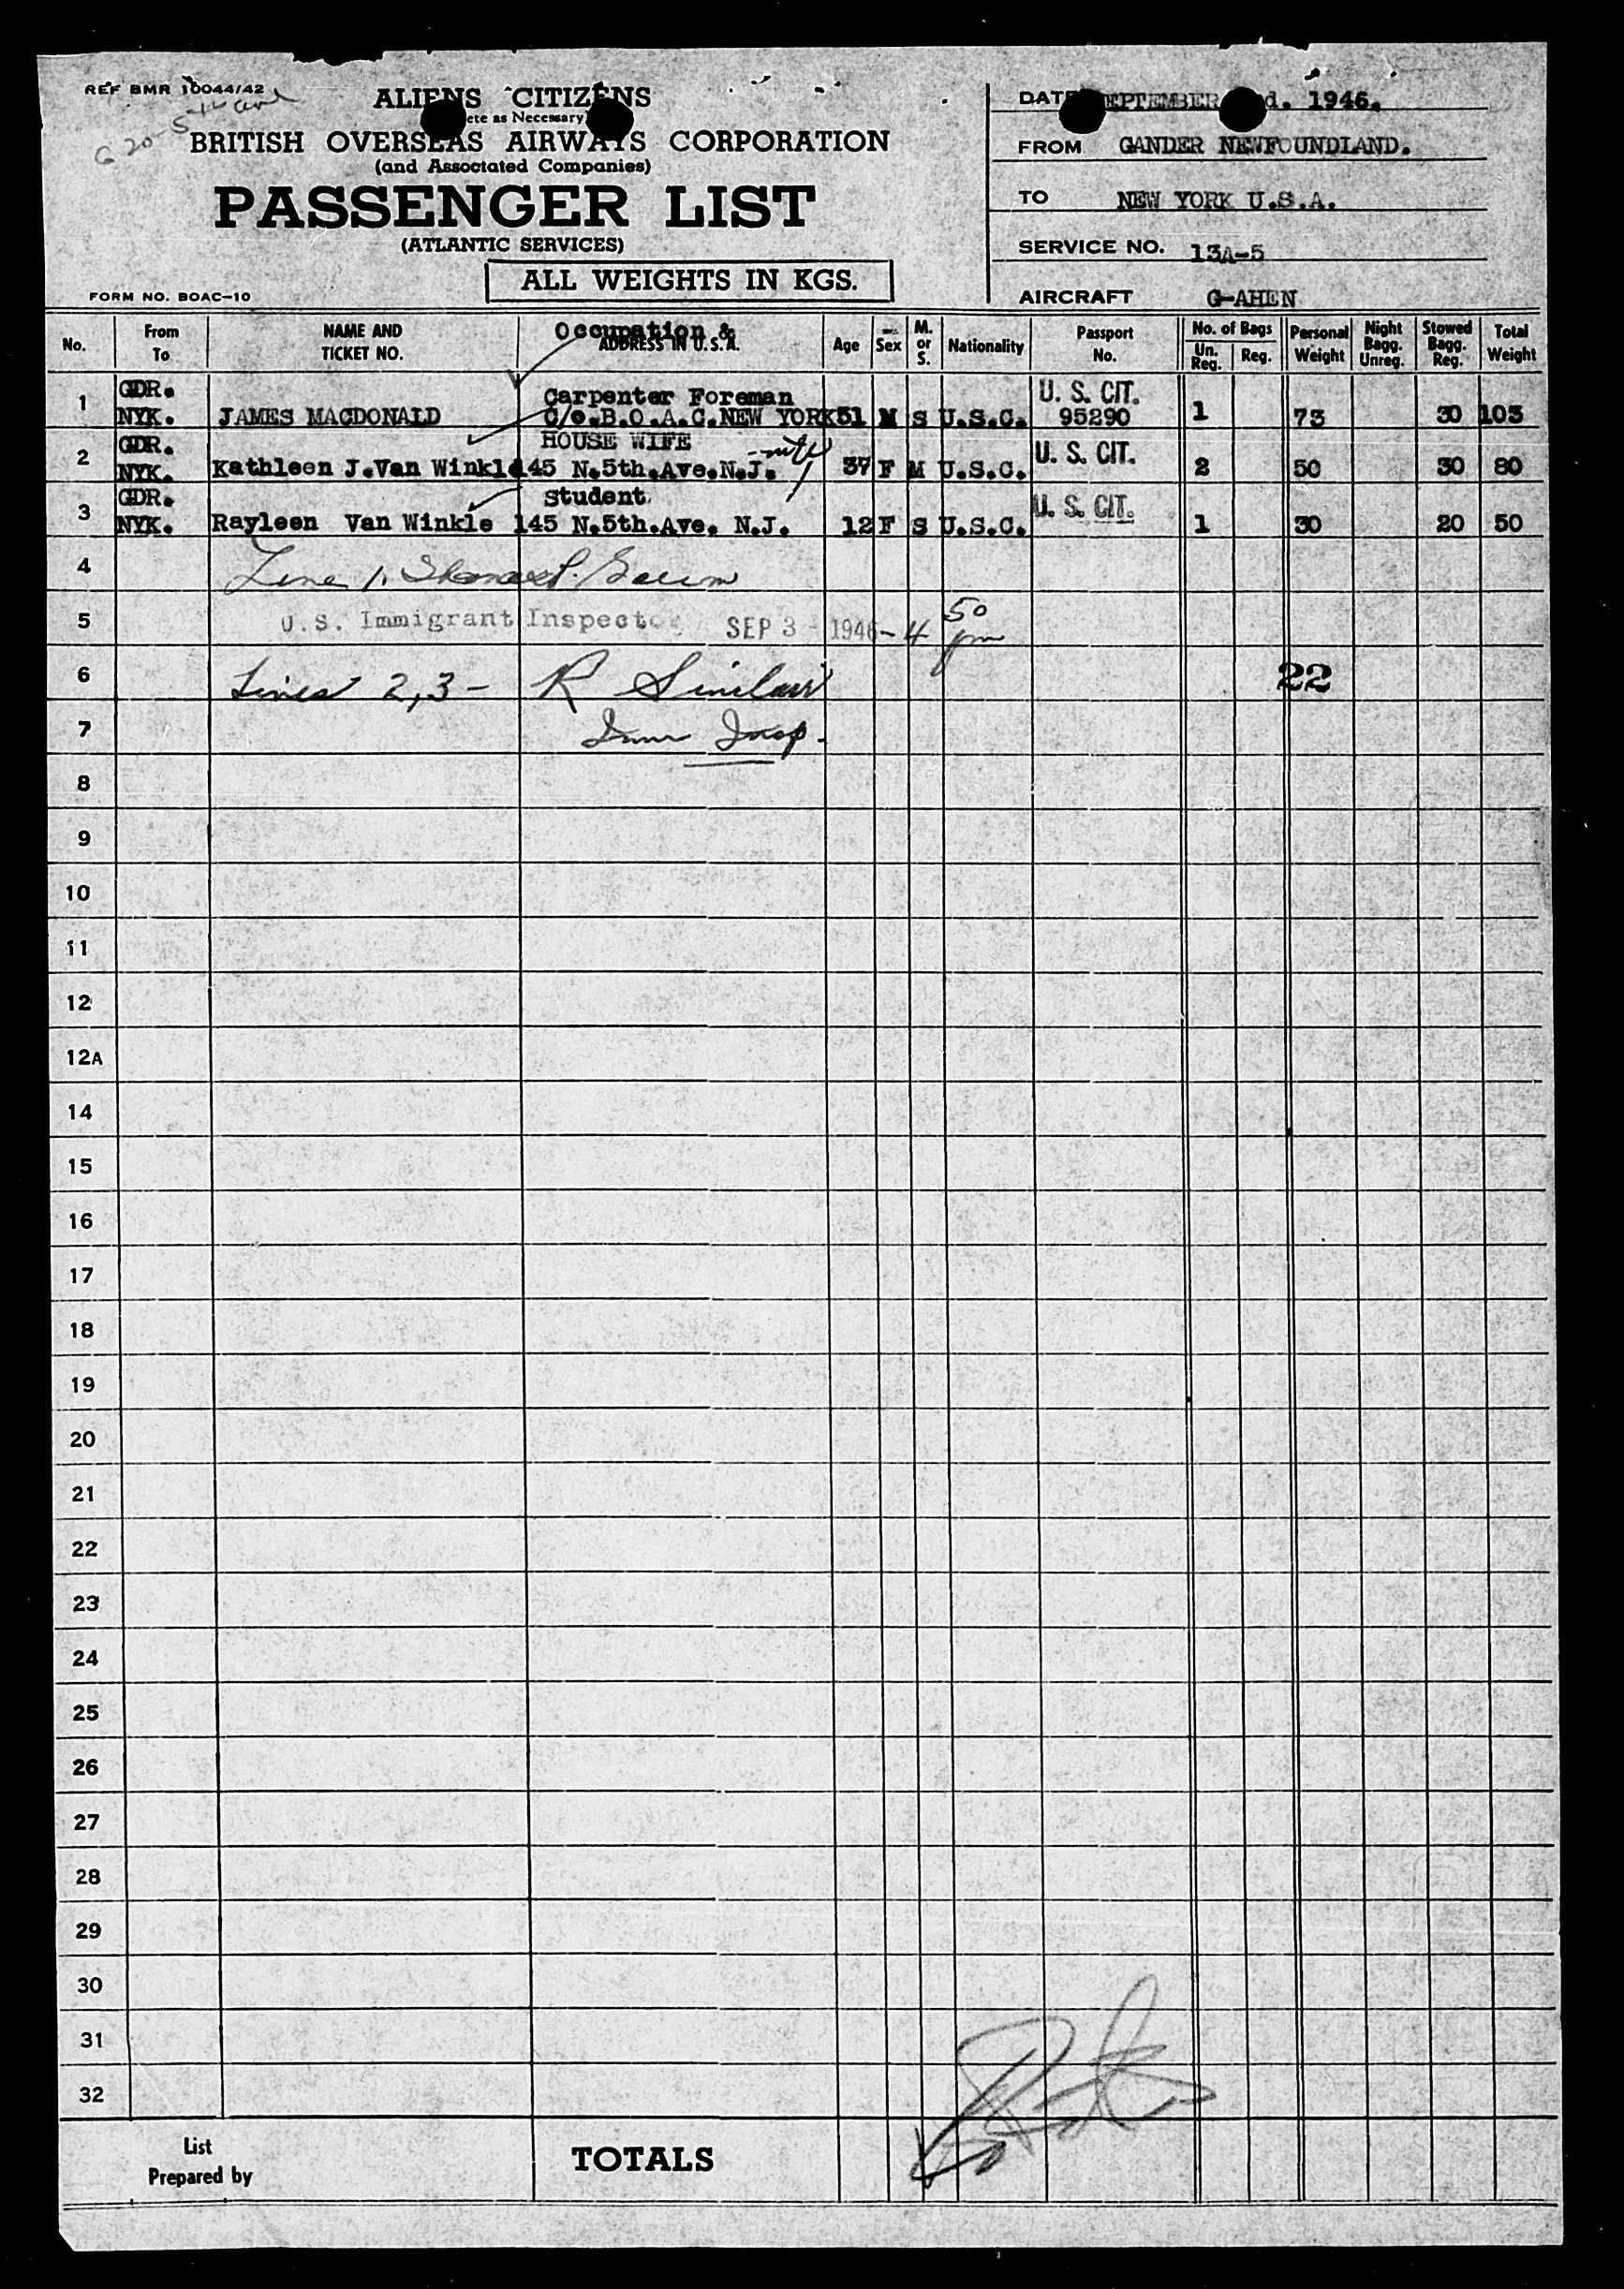 REF BMR 10044/42
ALIENS CITIZENS
ete as Necessary
BRITISH OVERSEAS AIRWAYS CORPORATION
(and Associated Companies)
PASSENGER LIST
(ATLANTIC SERVICES)
ALL WEIGHTS IN KGS.
FORM NO. BOAC-10
DATE SEPTEMBER d. 1946.
FROM GANDER NEWFOUNDLAND.
TO NEW YORK U.S.A.
SERVICE NO. 13A-5
AIRCRAFT G-AHEN
No. From To NAME AND TICKET NO. Occupation & ADDRESS IN U.S.A. Age Sex M. or S. Nationality Passport No. No. of Bags Un. Reg. Reg. Personal Weight Night Bagg. Unreg. Stowed Bagg. Reg. Total Weight
GDR. Carpenter Foreman U. S. CIT.
1 NYK. JAMES MACDONALD C/o.B.O.A.C.NEW YORK 51 M S U.S.C. 95290 1 73 30 103
GDR. HOUSE WIFE
2 NYK. Kathleen J.Van Winkle 145 N.5th.Ave.N.J. 37 F M U.S.C. U. S. CIT. 2 50 30 80
GDR. Student
3 NYK. Rayleen Van Winkle 145 N.5th.Ave. N.J. 12 F S U.S.C. U. S. CIT. 1 30 20 50
4 Line 1.
5 U.S. Immigrant Inspector SEP 3 - 1946 - 4 50 pm
6 Lines 2,3 - R Sinclair 22
7 Imm Insp.
8
9
10
11
12
12A
14
15
16
17
18
19
20
21
22
23
24
25
26
27
28
29
30
31
32
List Prepared by TOTALS